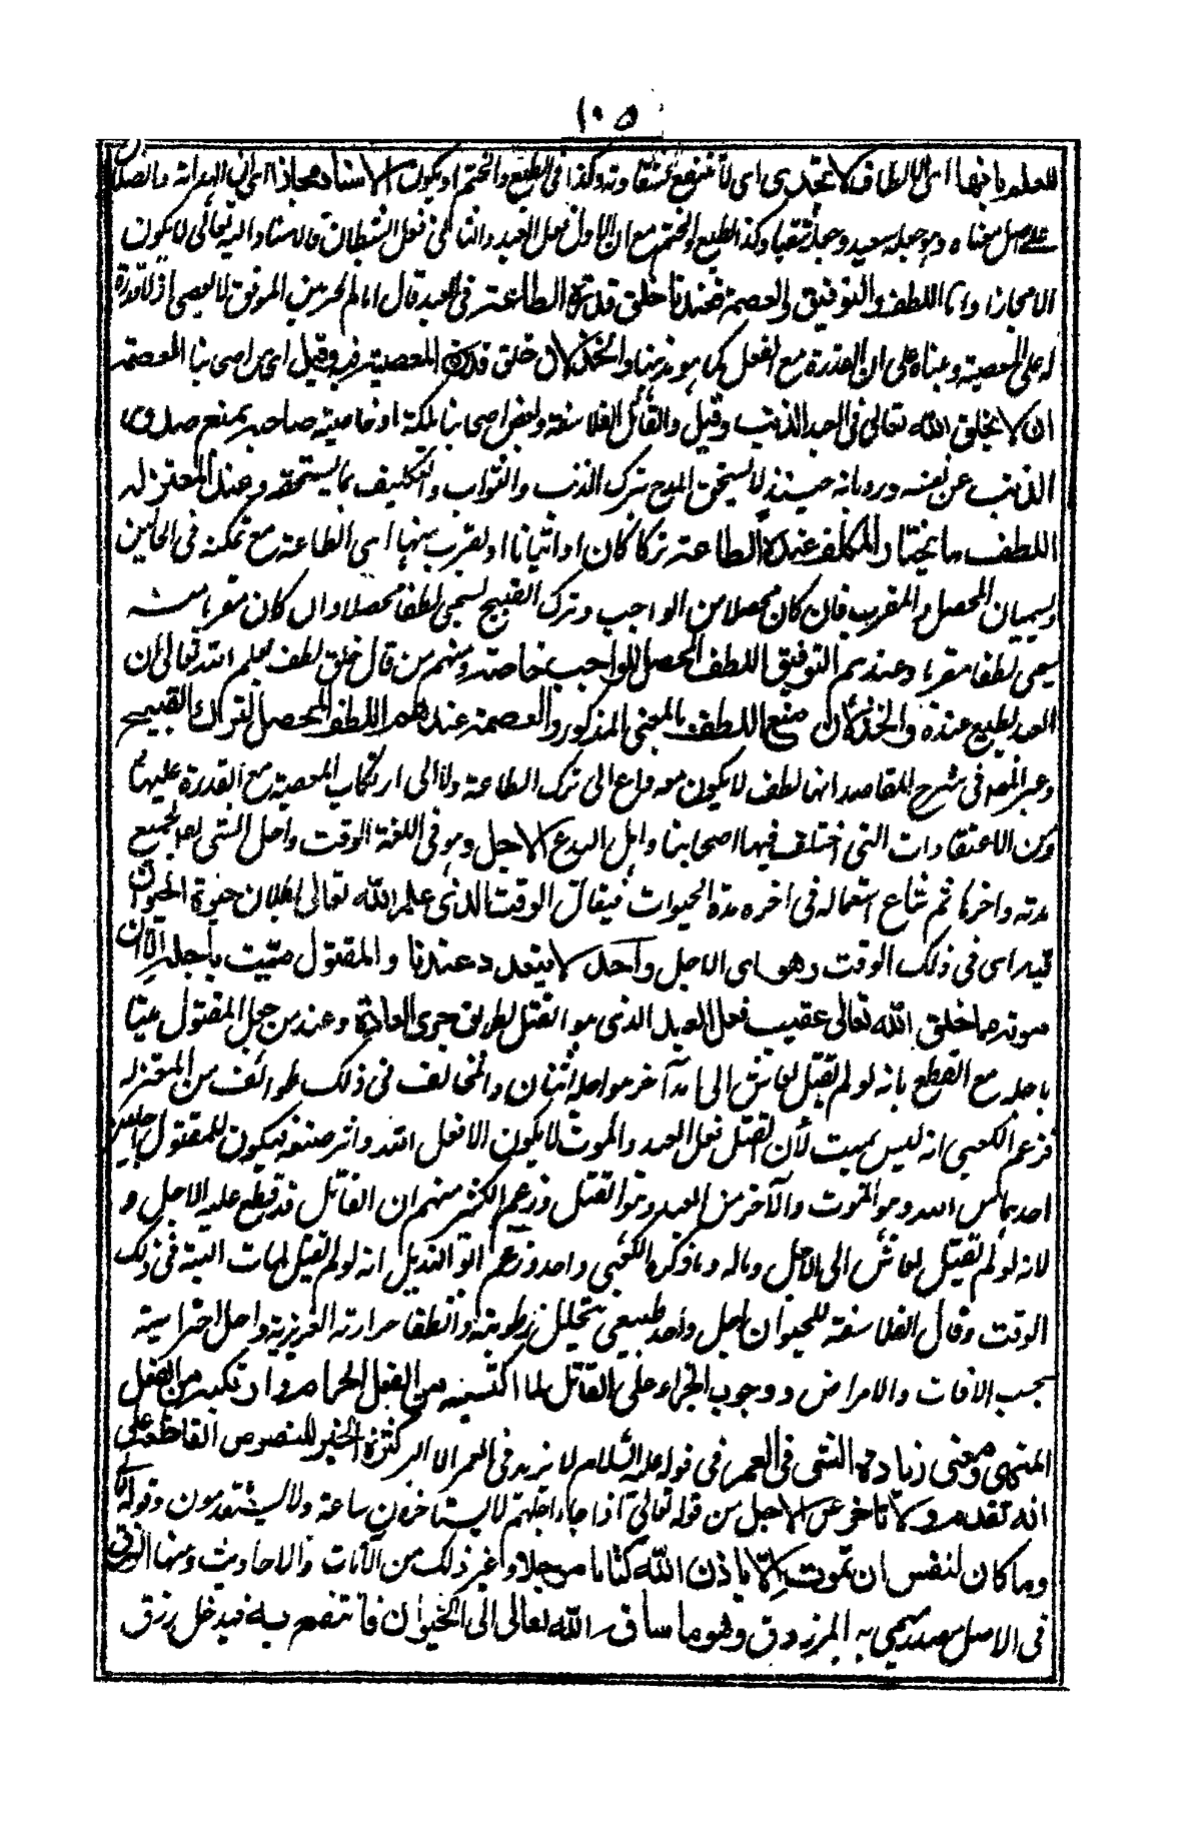 ١٠٥
للعلم بانها اى الالطاف لا تجدى اى لا تنفع لشقاوته وكذا فى الطبع والختم او يكون الاسناد مجازا اى الهداية والضلال
على اصل معناه وهو جعله سعيدا وجعله شقيا وكذا الطبع والختم مع ان الاول فعل العبد والثانى فعل الشيطان فالاسناد اليه تعالى لا يكون
الا مجازا واما اللطف والتوفيق والعصمة فعندنا خلق قدرة الطاعة فى العبد قال امام الحرمين الموفق لا يعصى اذ لا قدرة
له على المعصية وبناه على ان القدرة مع الفعل كما هو مذهبنا والخذلان خلق قدرة المعصية فيه وقيل اى من اصحابنا العصمة
ان لا يخلق الله تعالى فى العبد الذنب وقيل والقائل الفلاسفة وبعض اصحابنا ملكة او خاصية صاحبه يمنع صدور
الذنب عن نفسه ورد بانه حينئذ لا يستحق المدح بترك الذنب والثواب والتكليف بما يستحقه وعند المعتزلة
اللطف ما يختار المكلف عنده الطاعة تركا كان او اتيانا او يقرب منها اى الطاعة مع تمكنه فى الحالين
ويسميان المحصل والمقرب فان كان محصلا من الواجب وترك القبيح يسمى لطفا محصلا وان كان مقربا منه
يسمى لطفا مقربا وعندهم التوفيق اللطف المحصل للواجب خاصة ومنهم من قال خلق لطف يعلم الله تعالى ان
العبد يطيع عنده والخذلان منع اللطف بالمعنى المذكور والعصمة عندهم اللطف المحصل لترك القبيح
وعبر المصـ فى شرح المقاصد انها لطف لا يكون معه داع الى ترك الطاعة ولا الى ارتكاب المعصية مع القدرة عليهما
ومن الاعتقادات التى اختلف فيها اصحابنا واهل البدع الاجل وهو فى اللغة الوقت واجل الشئ لجميع
مدته واخرها ثم شاع استعماله فى اخره مدة الحيوات فيقال الوقت الذى علم الله تعالى بطلان حيوة الحيوان
فيه اى فى ذلك الوقت وهو اى الاجل واحد لا يتعدد عندنا والمقتول ميت باجله اذ ان
موته مما خلق الله تعالى عقيب فعل العبد الذى هو القتل بطريق جرى العادة وعند من جعل المقتول ميتا
باجله مع القطع بانه لو لم يقتل لعاش الى امد آخر هو اجله اثنان والمخالف فى ذلك طوائف من المعتزلة
فزعم الكعبى انه ليس بميت لأن القتل فعل العبد والموت لا يكون الا فعل الله واثر صنعه فيكون للمقتول اجلين
احدهما من الله وهو الموت والآخر من العبد وهو القتل وزعم الكثير منهم ان القاتل قد قطع عليه الاجل و
لانه لو لم يقتل لعاش الى الاجل وماله وما ذكره الكعبى واحد وزعم ابو الهذيل انه لو لم يقتل لمات البتة فى ذلك
الوقت وقال الفلاسفة للحيوان اجل واحد طبيعى بتحلل رطوبته وانطفا حرارته الغريزية واجل اخترامية
بحسب الافات والامراض ووجوب الجزاء على القاتل لما اكتسبه من الفعل الحرام وارتكبه من الفعل
المنهى ومعنى زيادة الشئ فى العمر فى قوله عليه السلام لا يزيد فى العمر الا البر كثرة الخير للنصوص القاطعة على
انه لا تقدم ولا تاخر عن الاجل من قوله تعالى اذا جاء اجلهم لا يستاخرون ساعة ولا يستقدمون وقوله تعالى
وما كان لنفس ان تموت الا باذن الله كتابا موجلا وغير ذلك من الآيات والاحاديث ومنها الرزق
فى الاصل مصدر سمى به المرزوق وهو ما ساق الله تعالى الى الحيوان فانتفع به فيدخل رزق